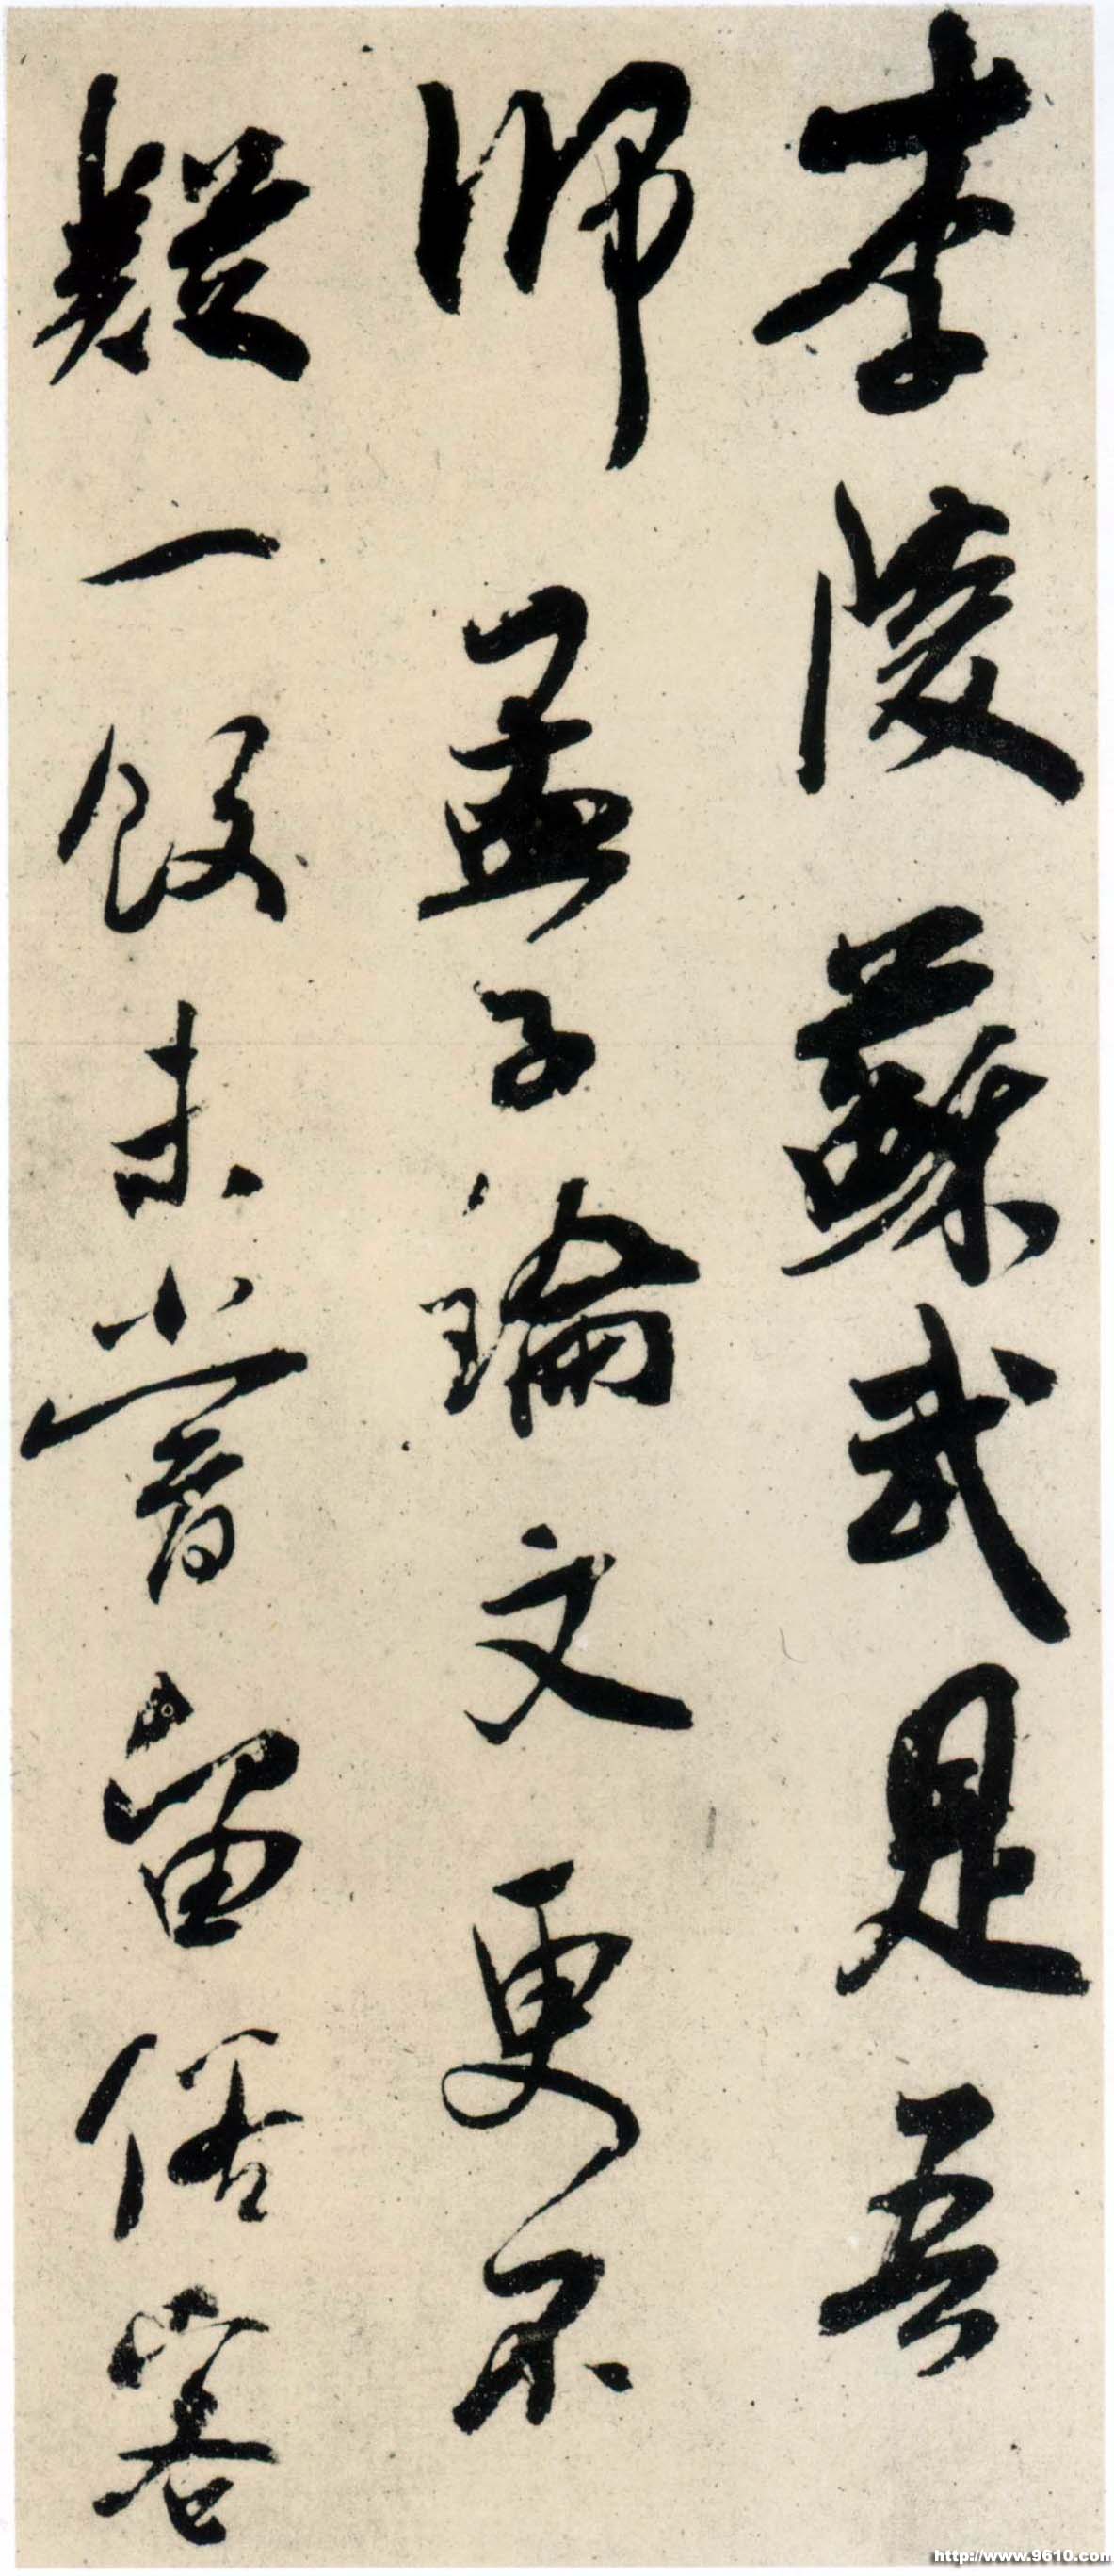 李陵蘇武是吾
師孟子論文更不
疑一飯未嘗留俗客
http://www.9610.com